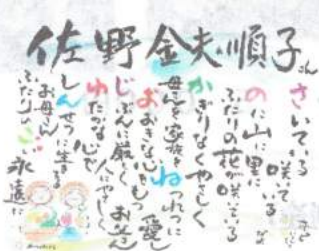 佐野金夫・順子さん
さいている 咲いている
のに山に里に
ふたりの花が咲いてる
かぎりなくやさしく
ねつれつに愛し
おおきな心をもつ お父さん
じぶんに厳しく
ゆたかな心で 人にやさしく
しんせつに生きる
お母さん
ふたりの 永遠に